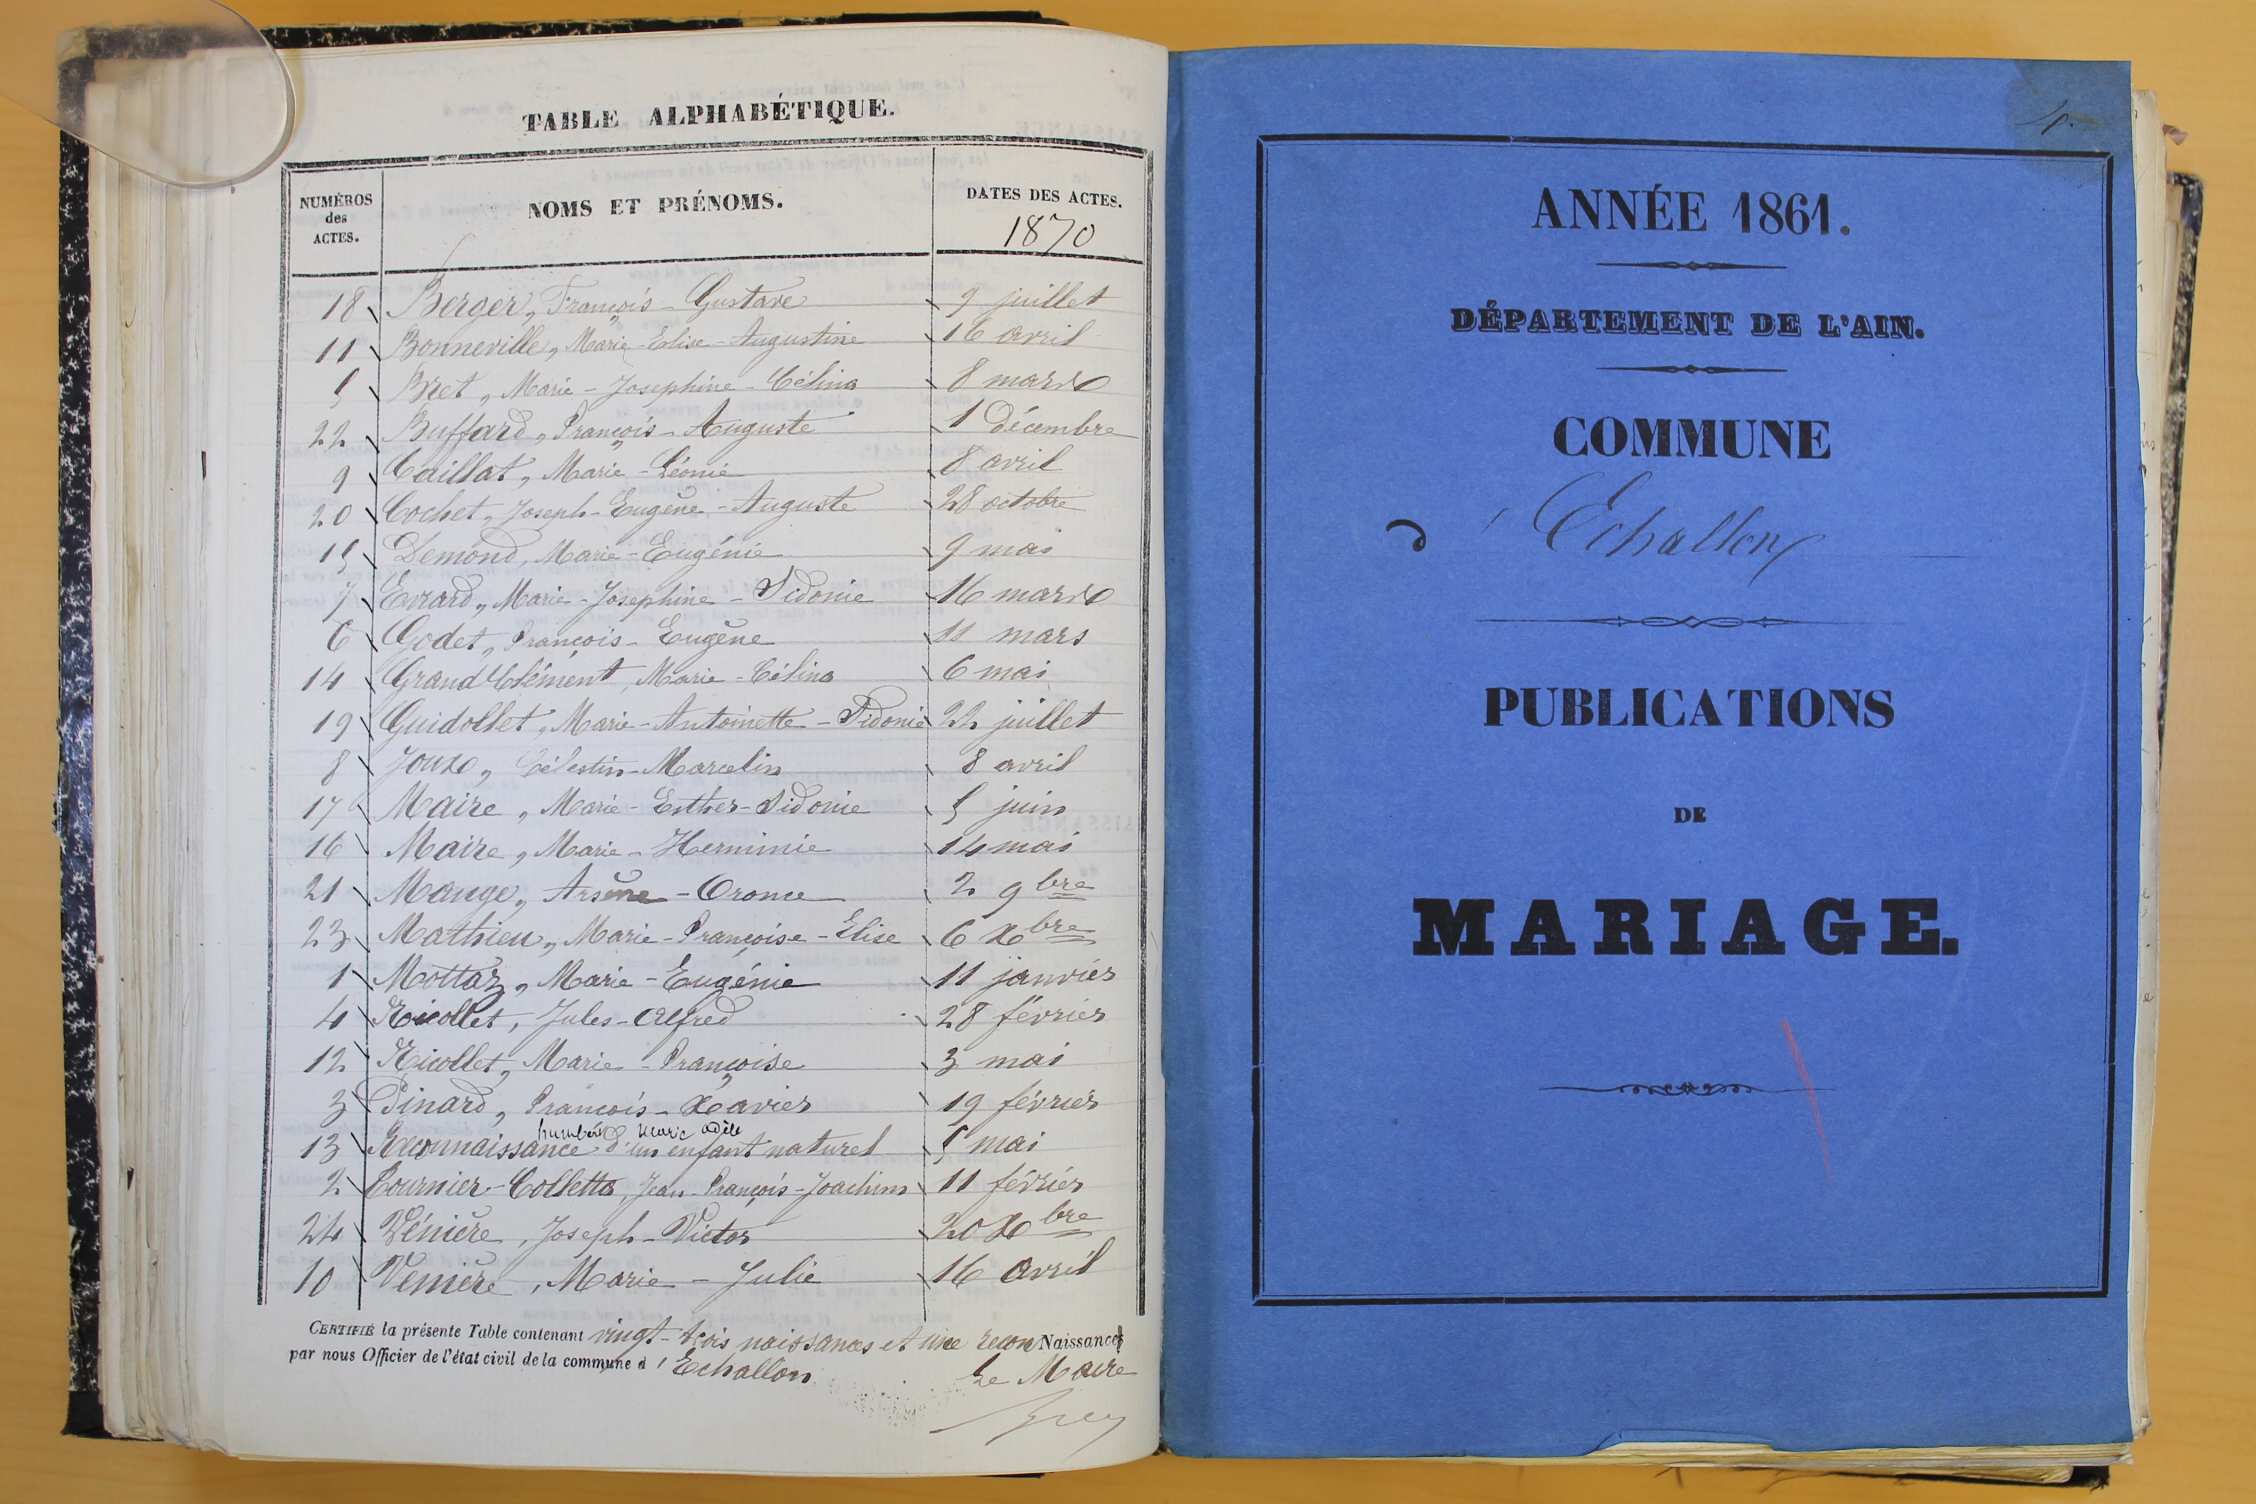 TABLE ALPHABÉTIQUE.
NUMÉROS des ACTES. NOMS ET PRÉNOMS. DATES DES ACTES.
1870
18 Berger, François-Gustave 9 juillet
11 Bonneville, Marie-Elise-Augustine 16 avril
5 Bret, Marie-Josephine-Célina 8 mars
22 Buffard, François-Auguste 1 Décembre
9 Caillat, Marie-Léonie 8 avril
20 Cochet, Joseph-Eugène-Auguste 28 octobre
15 Demond, Marie-Eugénie 9 mai
7 Evrard, Marie-Josephine-Sidonie 16 mars
6 Godet, François-Eugène 11 mars
14 Grand Clément, Marie-Célina 6 mai
19 Guidollet, Marie-Antoinette-Sidonie 22 juillet
8 Joux, Célestin-Marcelin 8 avril
17 Maire, Marie-Esther-Sidonie 5 juin
16 Maire, Marie-Herminie 14 mai
21 Mange, Arsène-Oronce 2 9bre
23 Mathieu, Marie-Françoise-Elise 6 Xbre
1 Mottaz, Marie-Eugénie 11 janvier
4 Nicollet, Jules-Alfred 28 février
12 Nicollet, Marie-Françoise 3 mai
3 Pinard, François-Xavier 19 février
humbert marie adèle
13 Reconnaissance d'un enfant naturel 5 mai
2 Tournier-Colletta, Jean-François-Joachim 11 février
24 Vénière, Joseph-Victor 20 Xbre
10 Venière, Marie-Julie 16 avril
CERTIFIÉ la présente Table contenant vingt-trois naissances et une recon Naissance
par nous Officier de l'état civil de la commune d'Echallon
Le Maire
ANNÉE 1861.
DÉPARTEMENT DE L'AIN.
COMMUNE
d'Echallon
PUBLICATIONS
DE
MARIAGE.